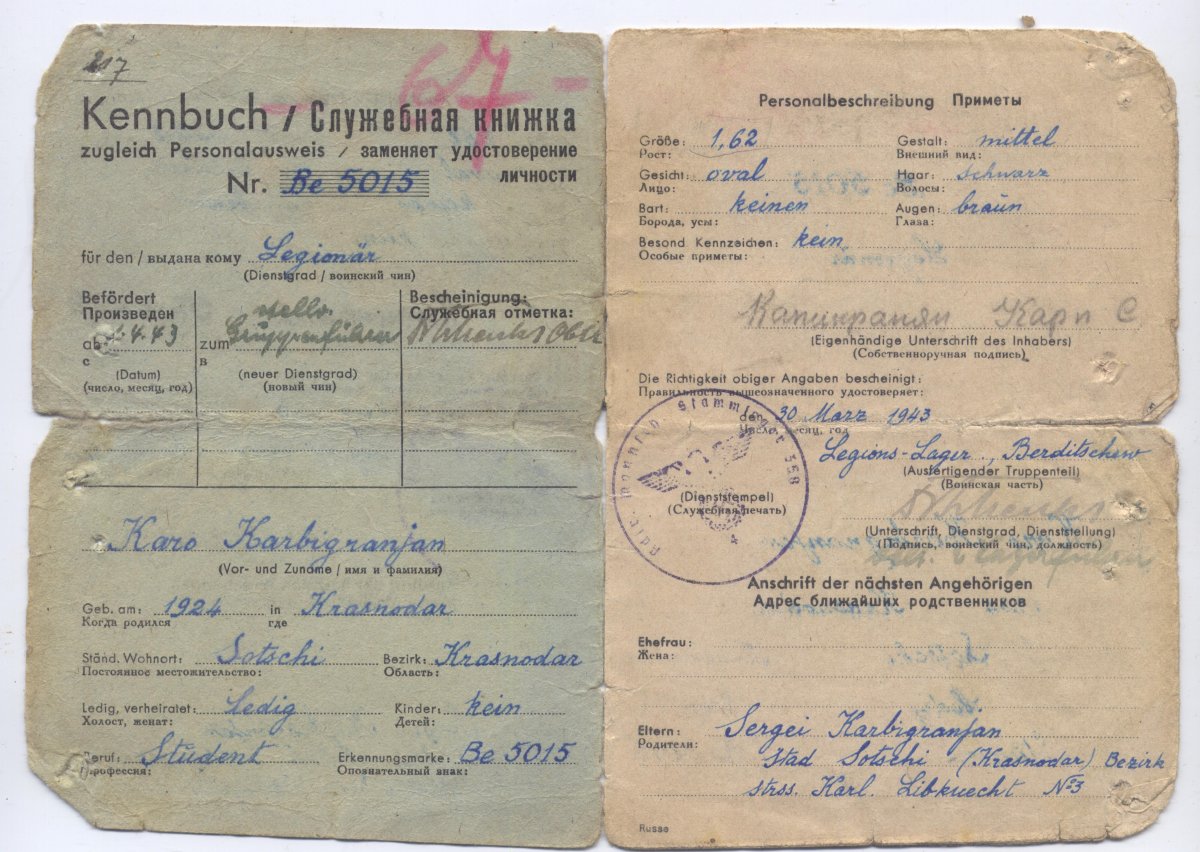 217
67
Kennbuch / Служебная книжка
zugleich Personalausweis / заменяет удостоверение
Nr. Be 5015 личности
für den / выдана кому Legionär
(Dienstgrad / воинский чин)
Befördert
Произведен
ab 4.43
с
(Datum)
(число, месяц, год)
stellv.
zum Gruppenführer
в
(neuer Dienstgrad)
(новый чин)
Bescheinigung:
Служебная отметка:
Karo Karbigranjan
(Vor- und Zuname / имя и фамилия)
Geb. am: 1924 in Krasnodar
Когда родился где
Ständ. Wohnort: Sotschi Bezirk: Krasnodar
Постоянное местожительство: Область:
Ledig, verheiratet: ledig Kinder: kein
Холост, женат: Детей:
Beruf: Student Erkennungsmarke: Be 5015
Профессия: Опознательный знак:
Personalbeschreibung Приметы
Größe: 1,62 Gestalt: mittel
Рост: Внешний вид:
Gesicht: oval Haar: schwarz
Лицо: Волосы:
Bart: keinen Augen: braun
Борода, усы: Глаза:
Besond Kennzeichen: kein
Особые приметы:
Карп С
(Eigenhändige Unterschrift des Inhabers)
(Собственноручная подпись)
Die Richtigkeit obiger Angaben bescheinigt:
Правильность вышеозначенного удостоверяет:
den 30 März 1943
Число, месяц, год
Legions-Lager, Berditschew
(Ausfertigender Truppenteil)
(Воинская часть)
Stammlager 358
(Dienststempel)
(Служебная печать)
(Unterschrift, Dienstgrad, Dienststellung)
(Подпись, воинский чин, должность)
Anschrift der nächsten Angehörigen
Адрес ближайших родственников
Ehefrau:
Жена:
Eltern: Sergei Karbigranjan
Родители: stad Sotschi (Krasnodar) Bezirk
strss. Karl. Libknecht №3
Russe